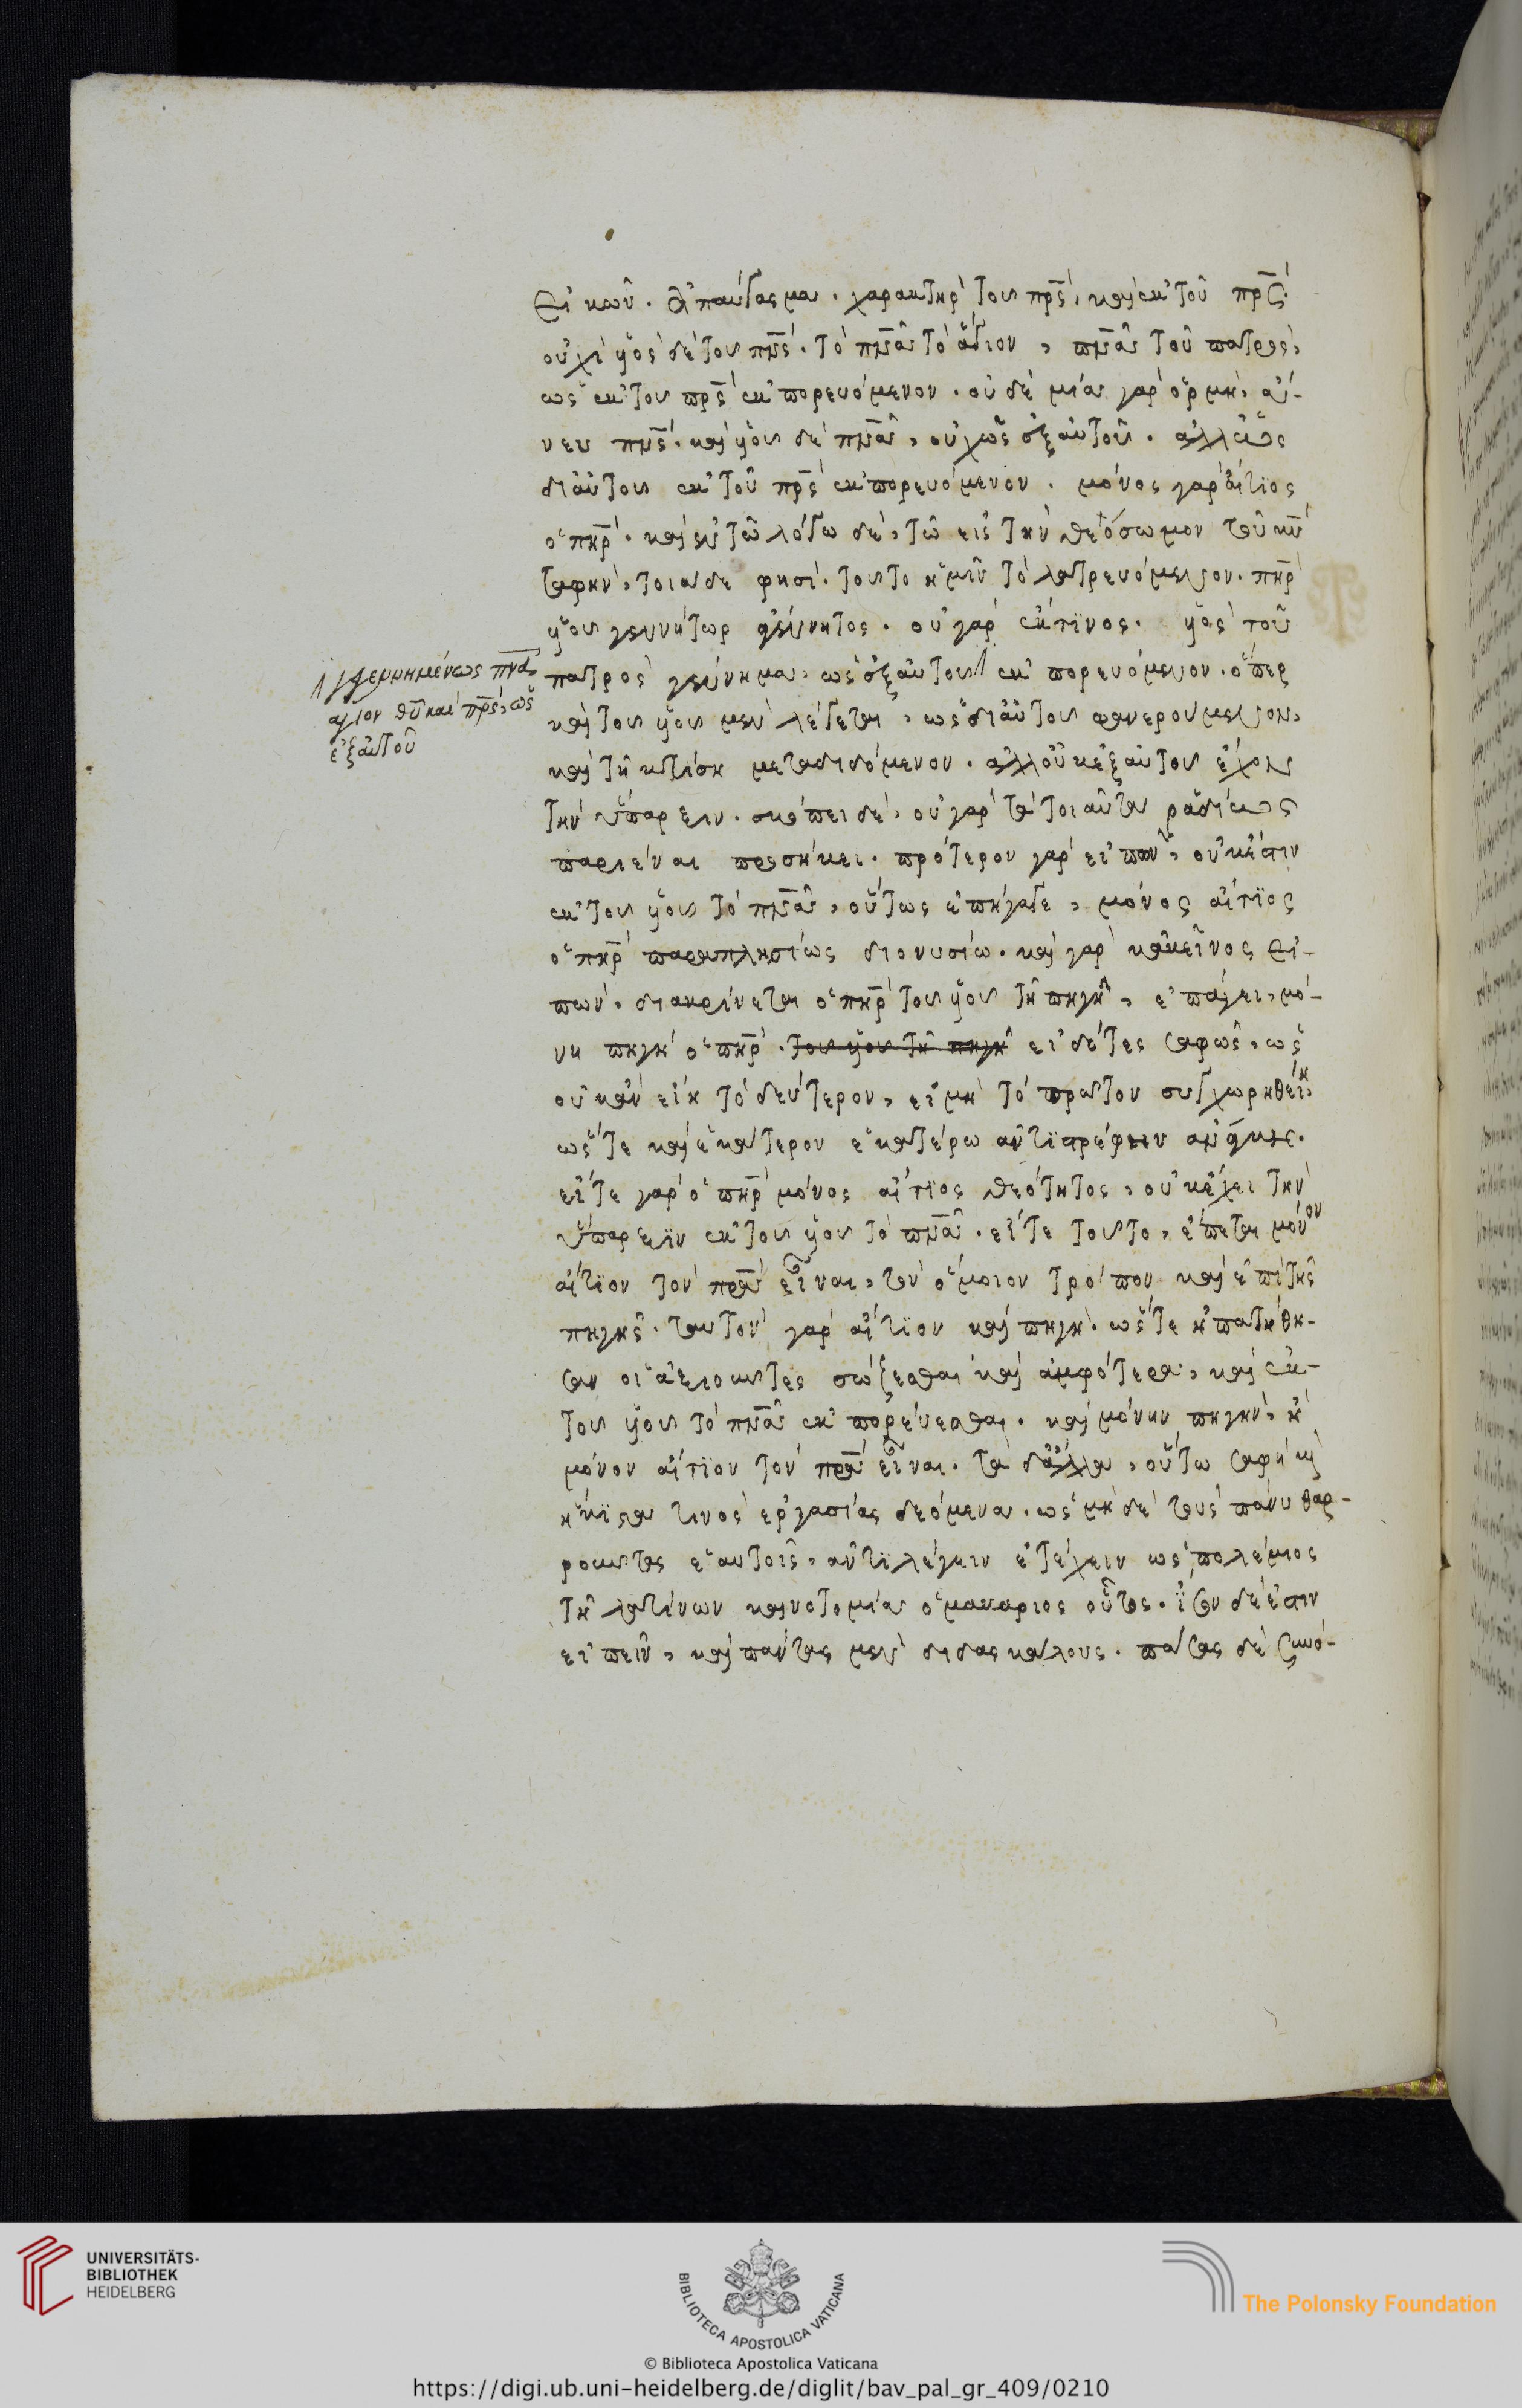 εἰκών. ἀπαύγασμα. χαρακτὴρ τοῦ πρς̅, καὶ ἐκ τοῦ πρς̅.
οὐχὶ υἱὸς δὲ τοῦ πνς̅. τὸ πνα̅ τὸ ἅγιον, πνα̅ τοῦ πατρὸς,
ὡς ἐκ τοῦ πρς̅ ἐκπορευόμενον. οὐδὲ μία γὰρ ὁρμὴ, ἄ-
νευ πνς̅. καὶ υἱοῦ δὲ πνα̅, οὐχ ὡς ἐξ αὐτοῦ. ἀλλ' ὡς
δι αὐτοῦ ἐκ τοῦ πρς̅ ἐκπορευόμενον. μόνος γὰρ αἴτϊος
ὁ πηρ̅. καὶ ἐν τῶ λόγω δὲ, τῶ εἰς τὴν θεόσωμον τοῦ κυ̅
ταφὴν, τοιάδε φησί. τοῦτο ἡμῖν τὸ λατρευόμενον. πηρ̅
υἱοῦ γεννήτωρ ἀγέννητος. οὐ γὰρ ἔκ τϊνος. υἱὸς τοῦ
πατρὸς γέννημα, ὡς ἐξ αὐτοῦ ἐκπορευόμενον. ὅπερ
καὶ τοῦ υἱοῦ μὲν λέγεται, ὡς δι αὐτοῦ φανερούμενον,
καὶ τῆ κτίση μεταδιδόμενον. ἀλλ' οὐκ ἐξ αὐτοῦ ἔχον
τὴν ὕπαρξιν. σκόπει δὲ, οὐ γὰρ τὰ τοιαῦτα ῥαδίως
παριέναι προσήκει. πρότερον γὰρ εἰπὼν, οὐκ ἔστιν
ἐκ τοῦ υἱοῦ τὸ πνα̅, οὕτως ἐπήγαγε, μόνος αἴτϊος
ὁ πηρ̅ παραπλησίως διονυσίω. καὶ γὰρ κἀκεῖνος εἰ-
πὼν, διακρίνεται ὁ πηρ̅ τοῦ υἱοῦ τῆ πηγῆ, ἐπάγει, μό-
νη πηγὴ ὁ πηρ̅. τοῦ υἱοῦ τῆ πηγῆ εἰδότες σαφῶς, ὡς
οὐκ ἂν εἴη τὸ δεύτερον, εἰ μὴ τὸ πρῶτον συγχωρηθείη,
ὥστε καὶ ἑκάτερον ἑκατέρω ἀντϊστρέφειν ἀνάγκη.
εἴτε γὰρ ὁ πηρ̅ μόνος αἴτϊος θεότητος, οὐκ ἔχει τὴν
ὕπαρξϊν ἐκ τοῦ υἱοῦ τὸ πνα̅. εἴτε τοῦτο, ἕπεται μόνον
αἴτϊον τὸν πρα̅ εἶναι, τὸν ὅμοιον τρόπον καὶ ἐπὶ τῆς
πηγῆς. ταυτὸν γὰρ αἴτϊον καὶ πηγὴ. ὥστε ἠπατήθη-
σαν οἱ ἀξιοῦντες σώζεσθαι καὶ ἀμφότερα, καὶ ἐκ
τοῦ υἱοῦ τὸ πνα̅ ἐκπορεύεσθαι. καὶ μόνην πηγὴν, ἢ
μόνον αἴτϊον τὸν πρα̅ εἶναι. τὰ δ' ἄλλα, οὕτω σαφῆ καὶ
ἥκϊστα τινὸς ἐργασίας δεόμενα. ὡς μὴ δὲ τοὺς πάνυ θαρ-
ροῦντας ἑαυτοῖς, ἀντϊλέγειν ἔτ' ἔχειν ὡς πολέμιος
τῆ λατίνων καινοτομία ὁ μακάριος οὗτος. ἴσον δέ ἐστιν
εἰπεῖν, καὶ πάντας μὲν διδασκάλους. πάσας δὲ συνό-
γεγεννημένως πνα̅
ἅγιον θυ̅ καὶ πρς̅, ὡς
ἐξ αὐτοῦ
UNIVERSITÄTS-
BIBLIOTHEK
HEIDELBERG
BIBLIOTECA APOSTOLICA VATICANA
The Polonsky Foundation
© Biblioteca Apostolica Vaticana
https://digi.ub.uni-heidelberg.de/diglit/bav_pal_gr_409/0210